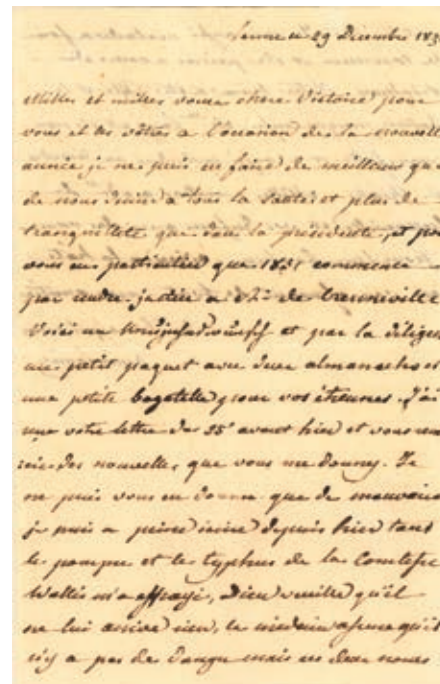 Vienne ce 29 Decembre 183
Milles et milles voeux chere Victoire pour
vous et les vôtres a l'occasion de la nouvelle
année je ne puis en faire de meilleur que
de nous desirer a tous la santé et plus de
tranquillité que dans la précédente, et pour
vous en particulier que 1831 commence
par rendre justice a de Trenneville
Voici un et par la diligence
un petit paquet avec deux almanachs et
une petite bagatelle pour vos étrennes. J'ai
reçu votre lettre du 25 avant hier et vous
des nouvelles que vous me donnez. Je
ne puis vous en donner que de mauvaises
je puis a peine ecrire depuis hier tant
la pauvre et le typhus de la Comtesse
Wallis m'a effrayé, Dieu veuille qu'il
ne lui arrive rien, le médecin assure qu'il
n'y a pas de danger mais ces deux